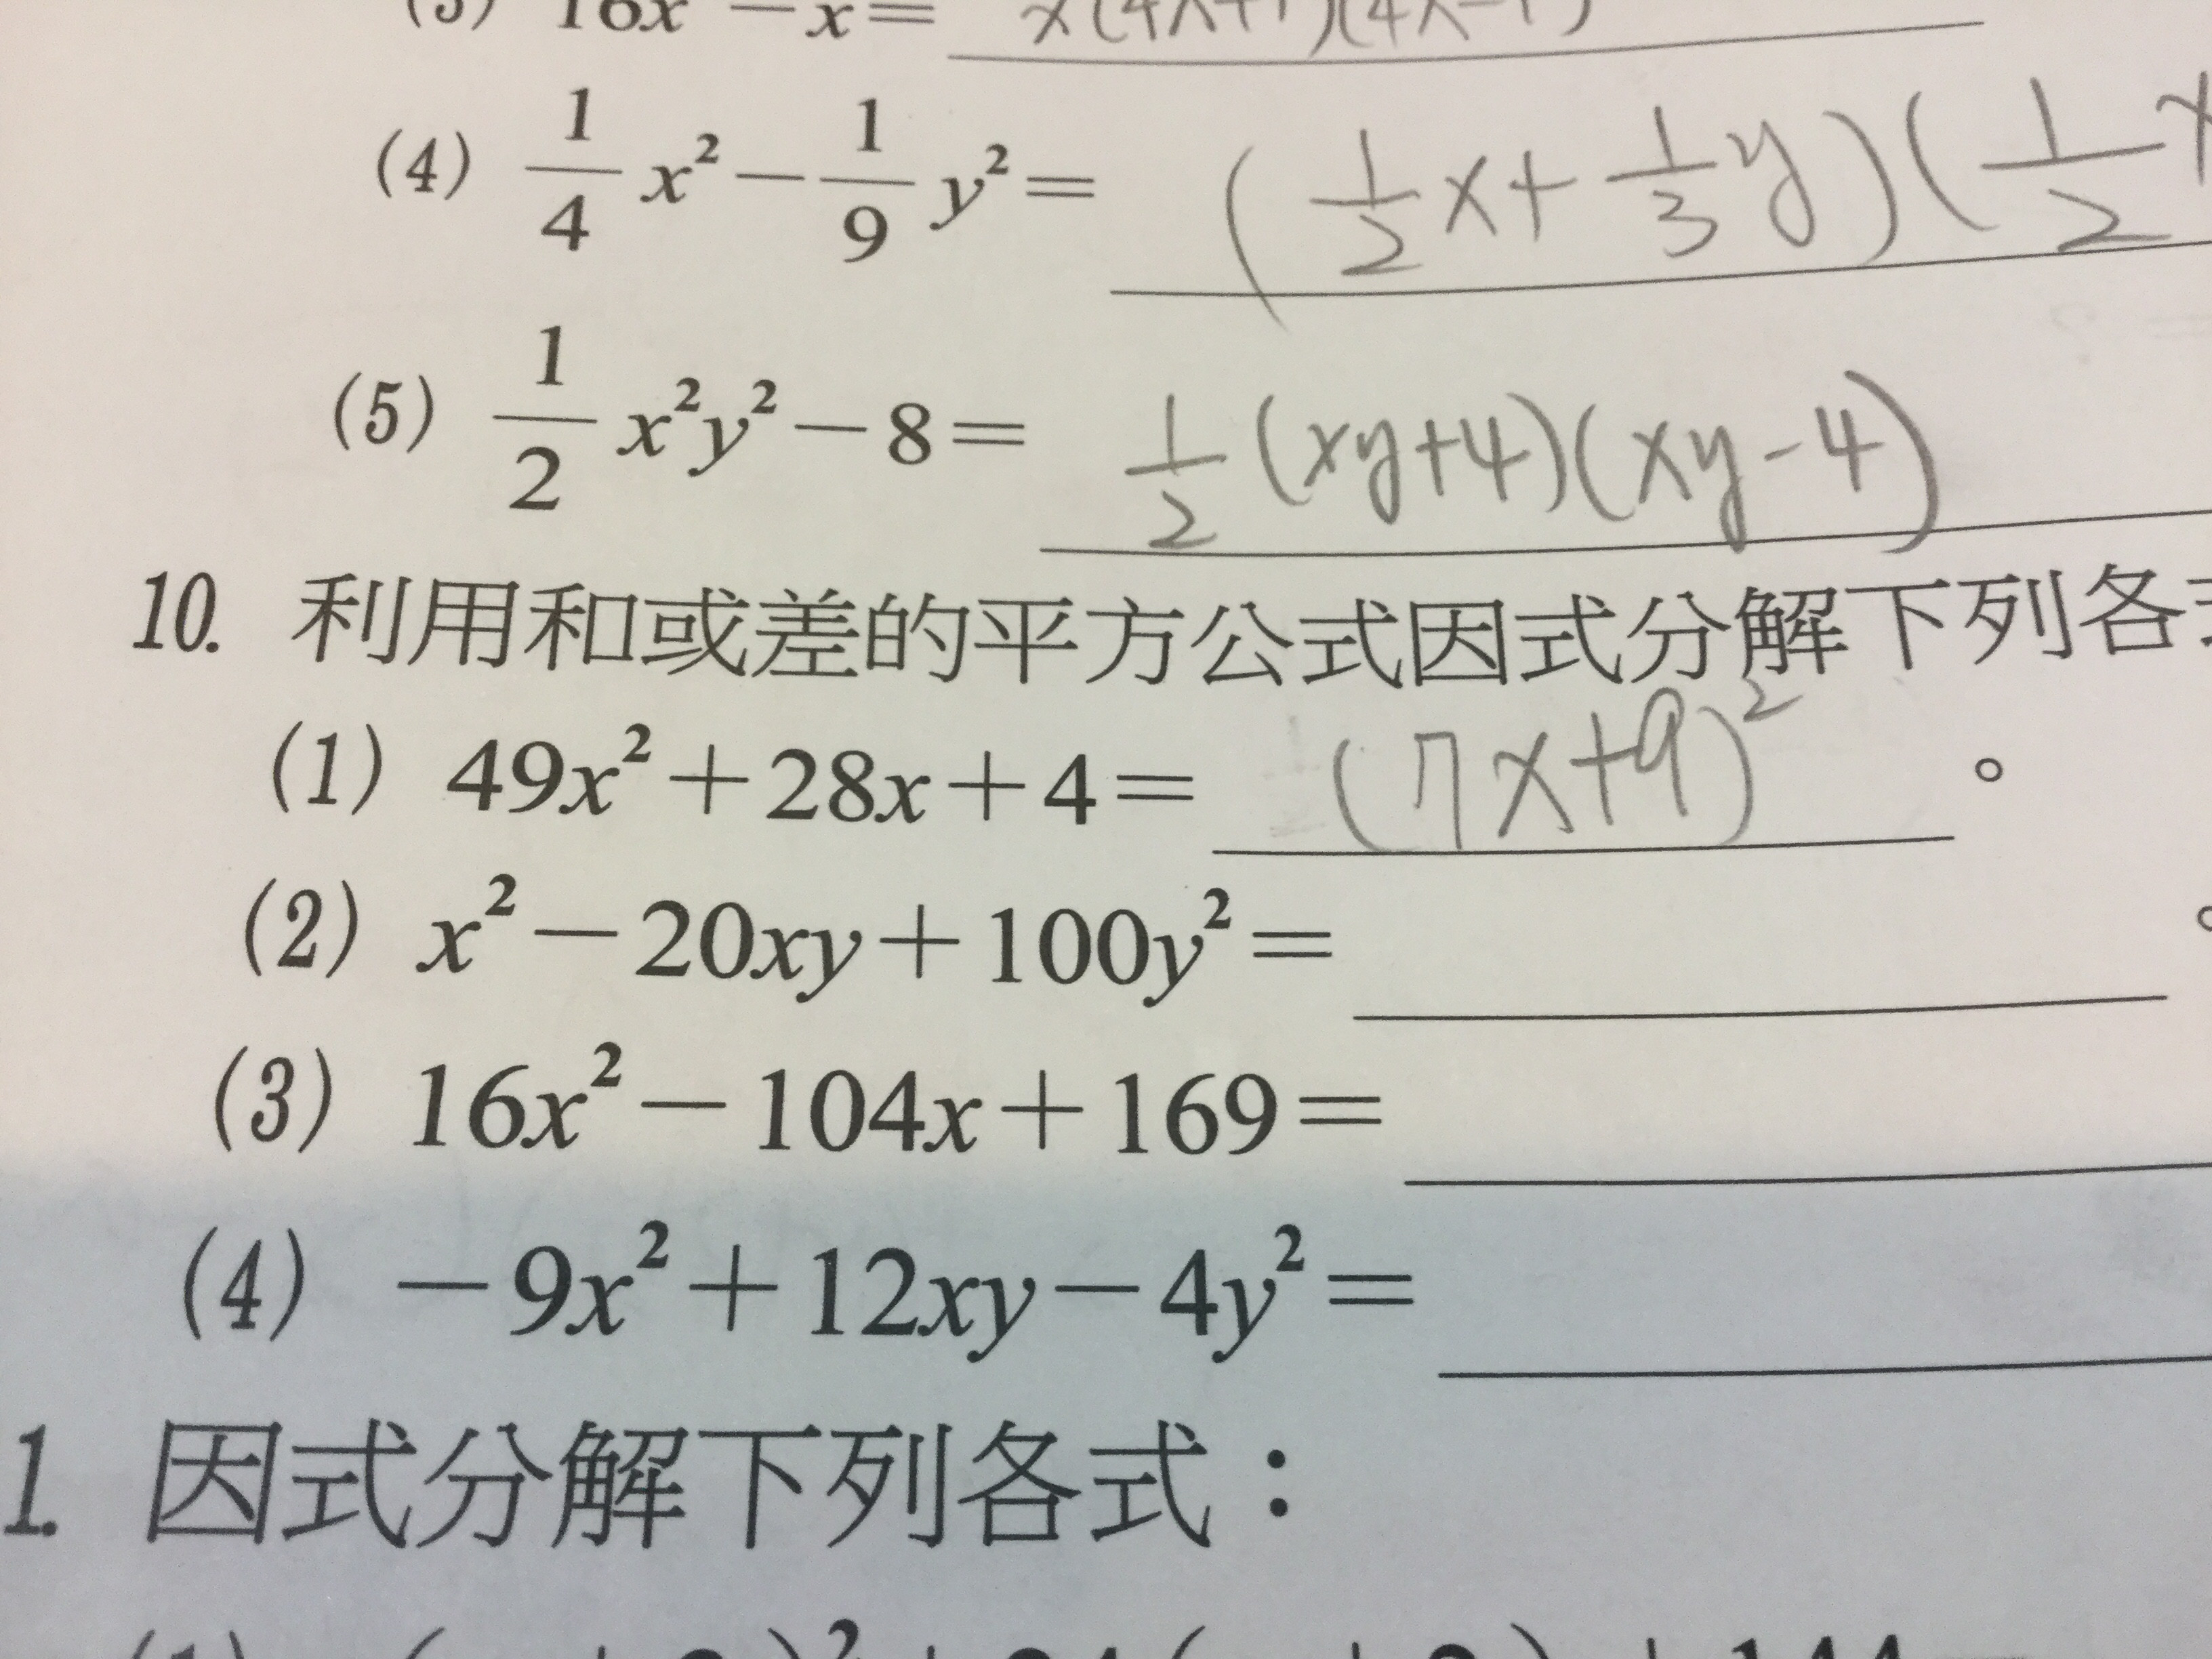 (3) 16x - x = x(4x+1)(4x-1)
(4) 1/4 x² - 1/9 y² = (1/2 x + 1/3 y)(1/2 x
(5) 1/2 x²y² - 8 = 1/2 (xy+4)(xy-4)
10. 利用和或差的平方公式因式分解下列各
(1) 49x² + 28x + 4 = (7x+9)² 。
(2) x² - 20xy + 100y² = 。
(3) 16x² - 104x + 169 =
(4) -9x² + 12xy - 4y² =
1. 因式分解下列各式：